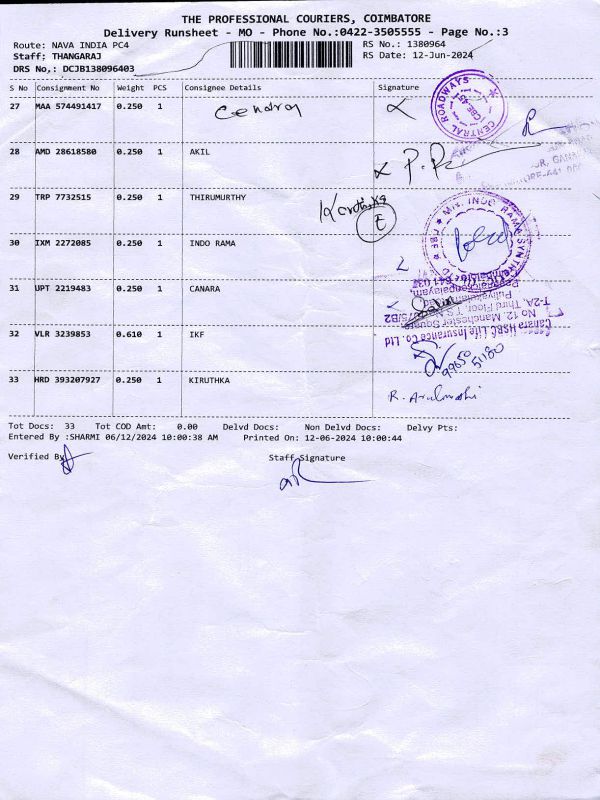 THE PROFESSIONAL COURIERS, COIMBATORE
Delivery Runsheet - MO - Phone No.:0422-3505555 - Page No.:3
Route: NAVA INDIA PC4 RS No.: 1380964
Staff: THANGARAJ RS Date: 12-Jun-2024
DRS No,: DCJB138096403
S No Consignment No Weight PCS Consignee Details Signature
27 MAA 574491417 0.250 1 Cendray
CENTRAL ROADWAYS
CBE-45
28 AMD 28618580 0.250 1 AKIL
29 TRP 7732515 0.250 1 THIRUMURTHY
E
30 IXM 2272085 0.250 1 INDO RAMA
31 UPT 2219483 0.250 1 CANARA
Canara HSBC Life Insurance Co. Ltd
No 12, Manchester Square
32 VLR 3239853 0.610 1 IKF
99650
51180
33 HRD 393207927 0.250 1 KIRUTHKA
Tot Docs: 33 Tot COD Amt: 0.00 Delvd Docs: Non Delvd Docs: Delvy Pts:
Entered By :SHARMI 06/12/2024 10:00:38 AM Printed On: 12-06-2024 10:00:44
Verified By Staff Signature